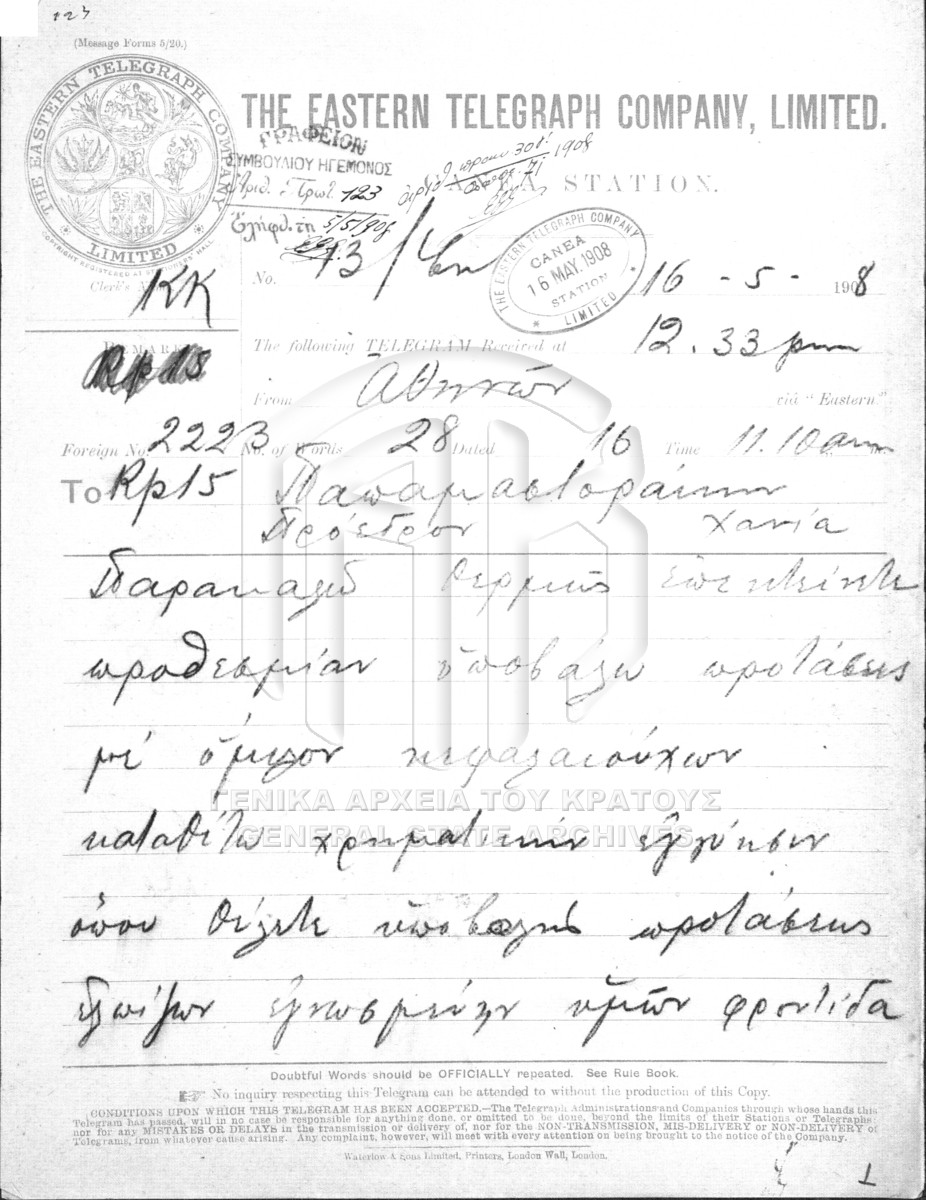 123
(Message Forms 5/20.)
THE EASTERN TELEGRAPH COMPANY
LIMITED
COPYRIGHT REGISTERED AT STATIONERS' HALL
THE EASTERN TELEGRAPH COMPANY, LIMITED.
CANEA STATION.
ΓΡΑΦΕΙΟΝ
ΣΥΜΒΟΥΛΙΟΥ ΗΓΕΜΟΝΟΣ
Ἀριθ. Πρωτ. 123
Ἐλήφθη τῇ 5/5/908
1908
THE EASTERN TELEGRAPH COMPANY
CANEA
16 MAY. 1908
STATION
LIMITED
Clerk's
KK
No. 13/
16 - 5 - 1908
Rp 15
The following TELEGRAM Received at 12.33 pm
From Ἀθηνῶν viâ "Eastern."
Foreign No. 2223 No. of Words 28 Dated 16 Time 11.10 am
To Rp 15 Παπαμαστοράκην
Πρόεδρον Χανία
Παρακαλῶ θερμῶς ἐπεκτείνετε
προθεσμίαν ὑποβάλω προτάσεις
μέ ὅμιλον κεφαλαιούχων
καταθέτω χρηματικήν ἐγγύησιν
ὅπου θέλετε ὑποβολῆς προτάσεως
ἐλπίζων ὑμῶν φροντίδα
ΓΕΝΙΚΑ ΑΡΧΕΙΑ ΤΟΥ ΚΡΑΤΟΥΣ
GENERAL STATE ARCHIVES
Doubtful Words should be OFFICIALLY repeated. See Rule Book.
No inquiry respecting this Telegram can be attended to without the production of this Copy.
CONDITIONS UPON WHICH THIS TELEGRAM HAS BEEN ACCEPTED.—The Telegraph Administrations and Companies through whose hands this
Telegram has passed, will in no case be responsible for anything done, or omitted to be done, beyond the limits of their Stations or Telegraphs:
nor for any MISTAKES OR DELAYS in the transmission or delivery of, nor for the NON-TRANSMISSION, MIS-DELIVERY or NON-DELIVERY of
Telegrams, from whatever cause arising. Any complaint, however, will meet with every attention on being brought to the notice of the Company.
Waterlow & Sons Limited, Printers, London Wall, London.